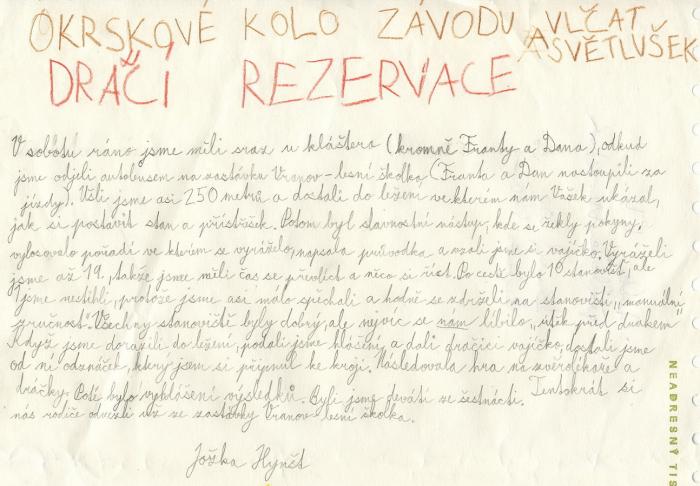 OKRSKOVÉ KOLO ZÁVODU VLČAT
A SVĚTLUŠEK
DRAČÍ REZERVACE
V sobotu ráno jsme měli sraz u kláštera (kromně Franty a Dana), odkud
jsme odjeli autobusem na zastávku Vranov-lesní školka (Franta a Dan nastoupili za
jízdy). Ušli jsme asi 250 metrů a dostali do ležení ve kterém nám Vašek ukázal,
jak si postavit stan a přístřešek. Potom byl slavnostní nástup, kde se řekly pokyny,
vylosovalo pořadí ve kterém se vyráželo, napsala průvodka a vzali jsme si vajíčko. Vyráželi
jsme až 19, takže jsme měli čas se převlíct a něco si říct. Po cestě bylo 10 stanovišť, ale
jsme nestihli, protože jsme asi málo spěchali a hodně se zdrželi na stanovišti „manuální
zručnost". Všechny stanoviště byly dobrý, ale nejvíc se nám líbilo „útěk před drakem"
Když jsme dorazili do ležení, podali jsme hlášení a dali dračici vajíčko, dostali jsme
od ní odznáček, který jsem si připnul ke kroji. Následovala hra na zvěrolékaře a
dráčky. Poté bylo vyhlášení výsledků. Byli jsme devátí ze šestnácti. Tentokrát si
nás rodiče odvezli už ze zastávky Vranov-lesní školka.
Jožka Hynšt
NEADRESNÝ TIS